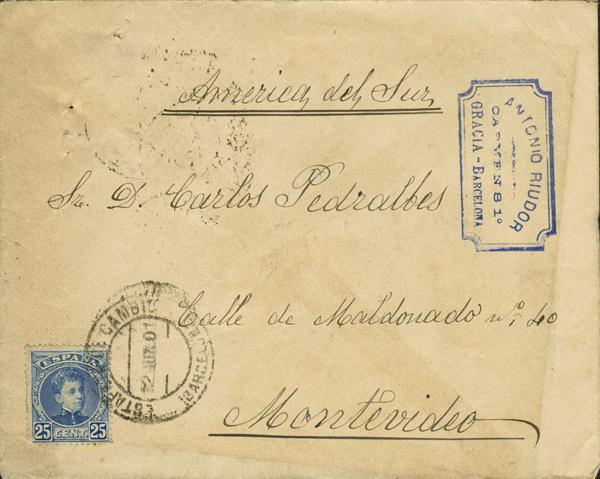 America del Sur
Sr. D. Carlos Pedralbes
Calle de Maldonado nº 40
Montevideo
ANTONIO RIUDOR
CARMEN 8 1º
GRACIA - BARCELONA
CAMBIO
ESTAF
BARCE
12 01
ESPAÑA
25 CENT. 25